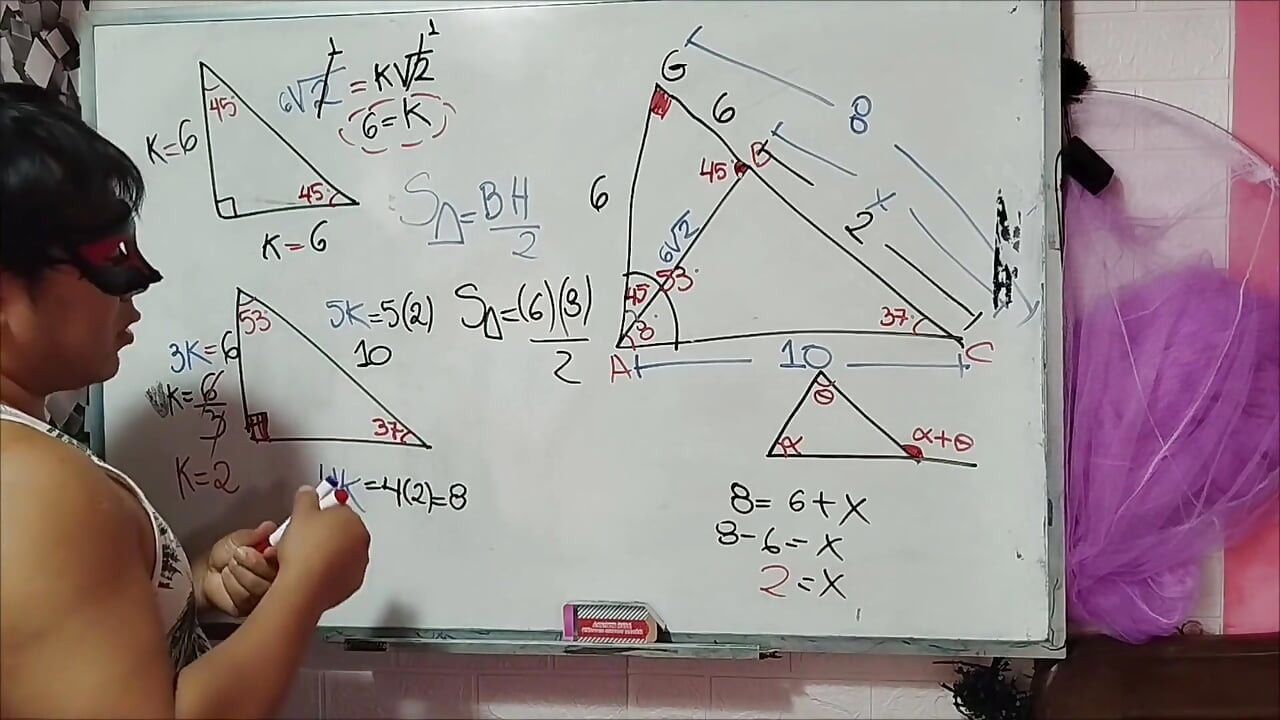 45
K=6
45
K=6
6√2 = K√2
1 1
6=K
S△=BH/2
53
3K=6
K=6/3
K=2
37
5K=5(2)
10
4K=4(2)=8
S△=(6)(8)/2
G
6
8
45
B
6
x
2
6√2
53
45
8
37
A
10
C
θ
α
α+θ
8=6+X
8-6=X
2=X